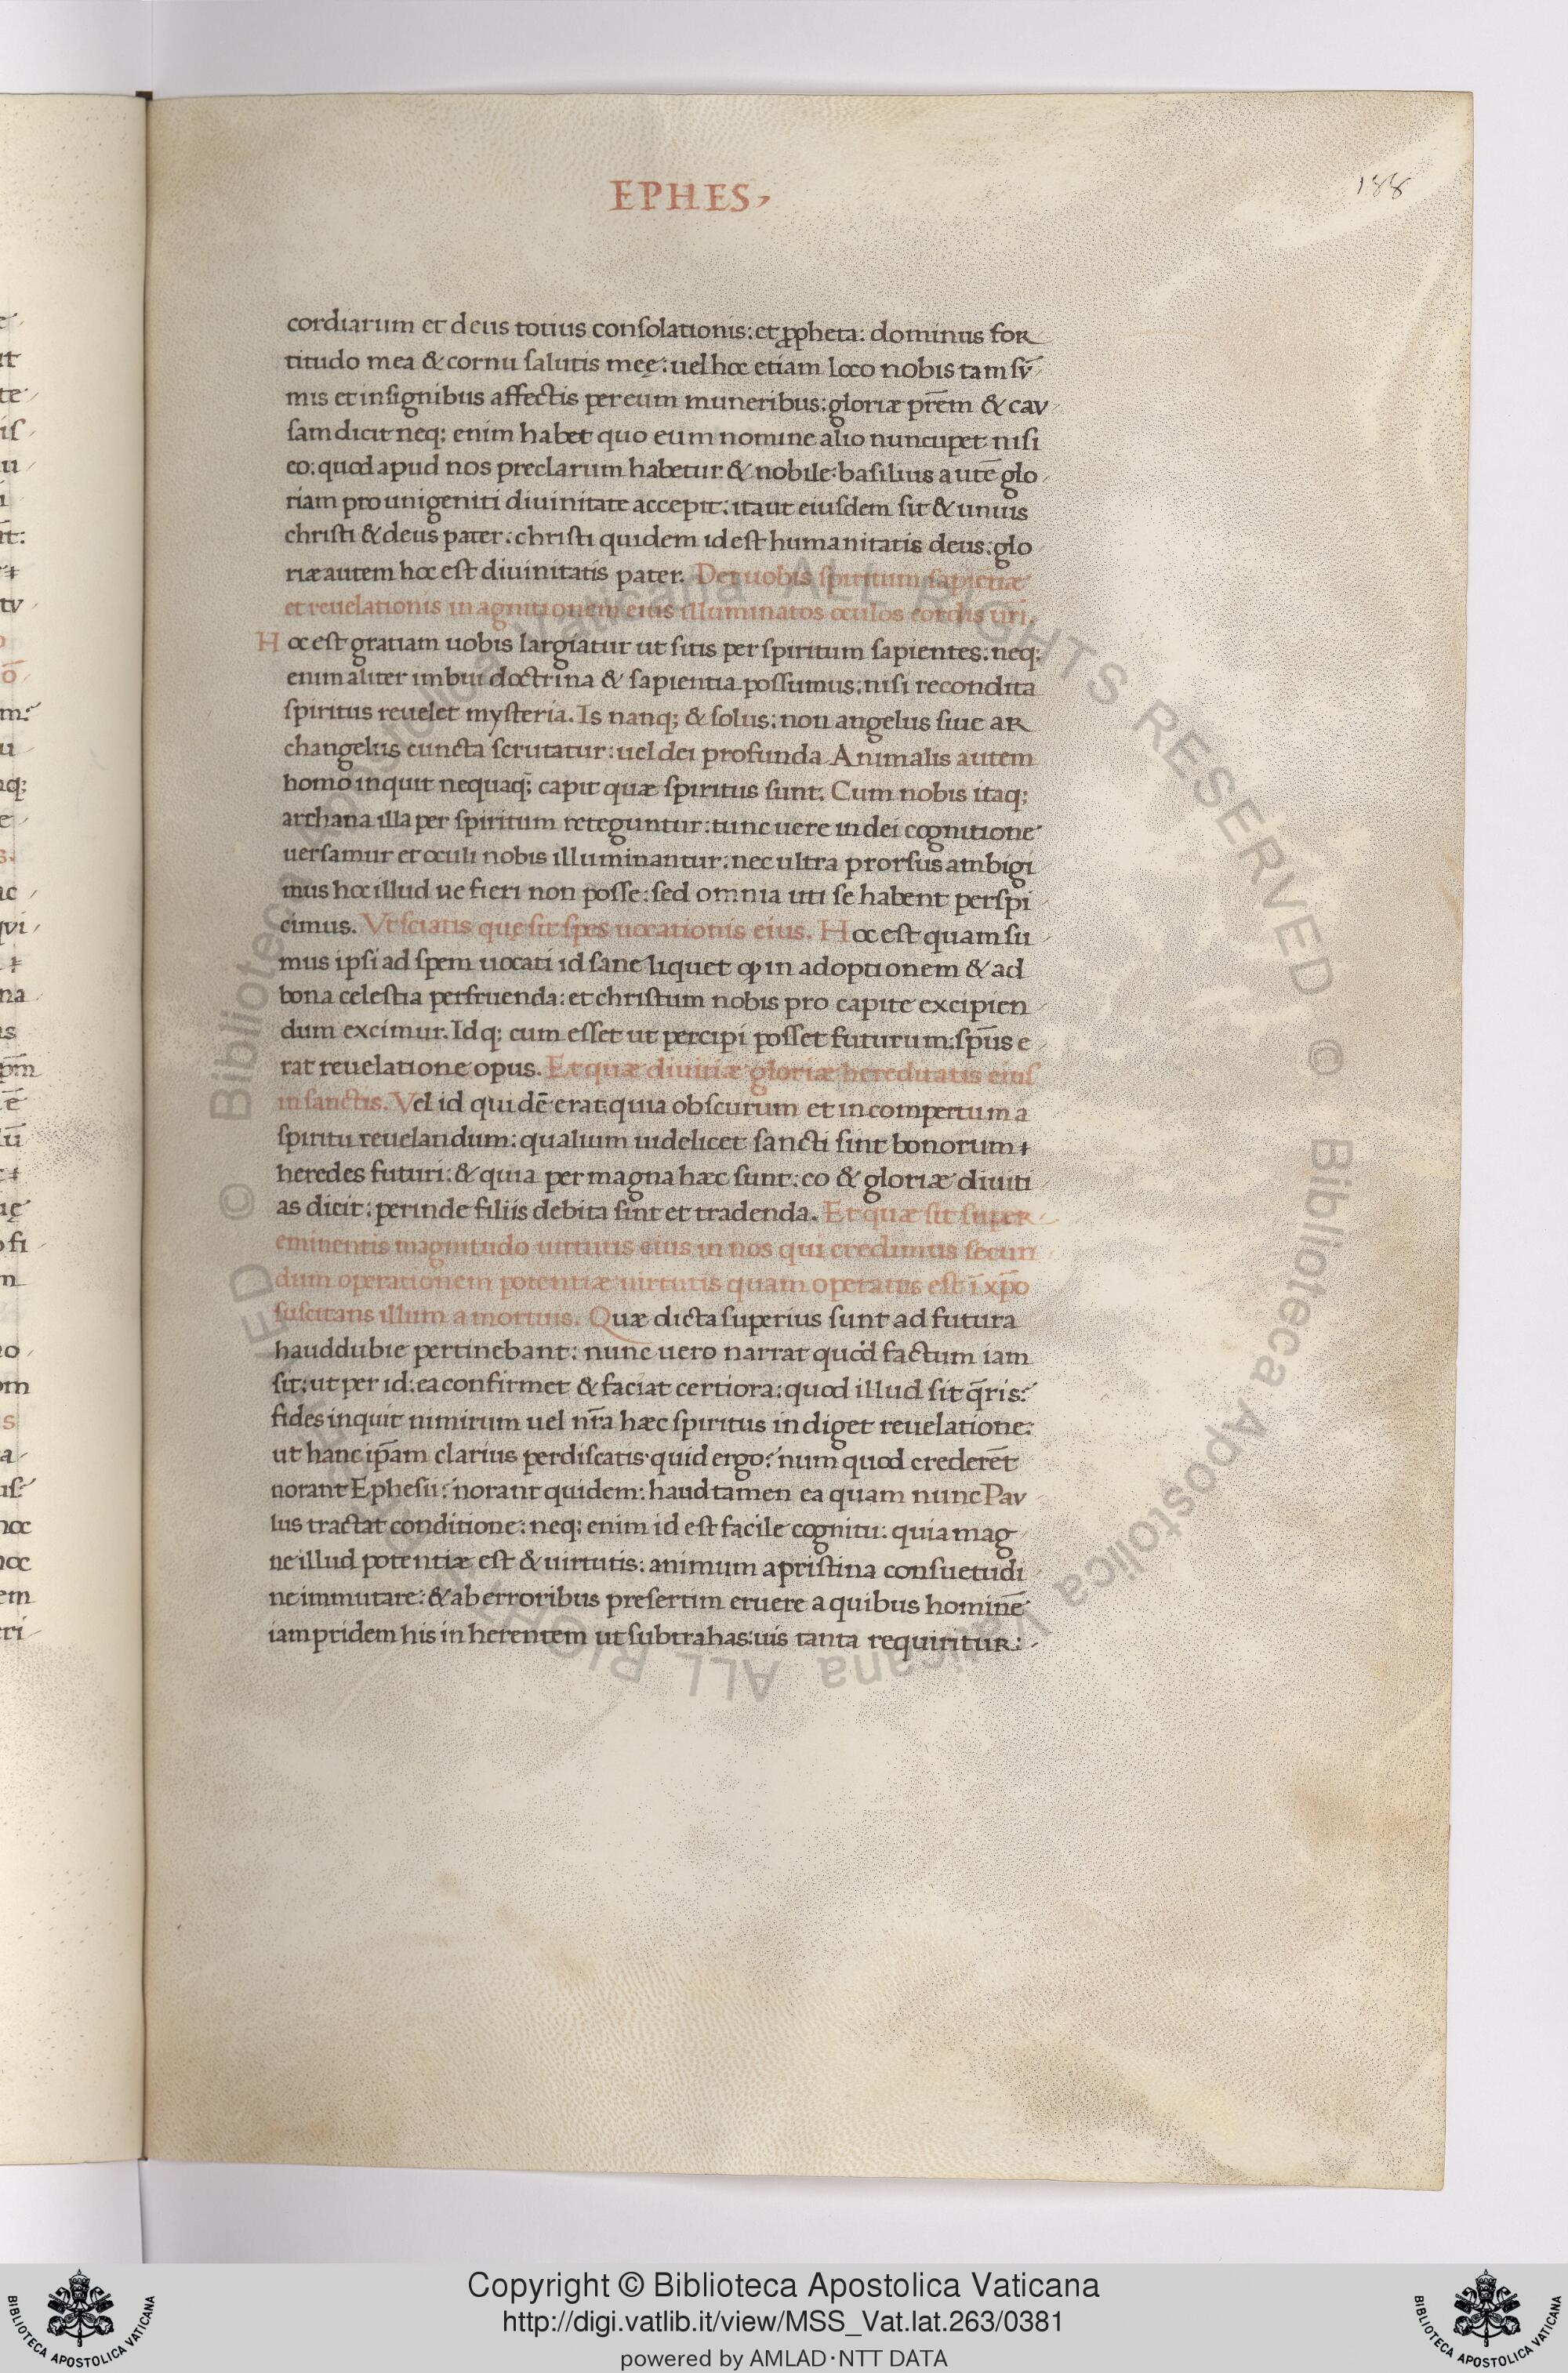 EPHES,
188
cordiarum et deus totius conſolationis: et ꝓpheta: dominus for
titudo mea & cornu ſalutis meę: uel hoc etiam loco nobis tam ſv̄
mis et inſignibus affectis per eum muneribus: gloriæ pr̄em & cav
ſam dicit neq; enim habet quo eum nomine alio nuncupet niſi
eo: quod apud nos preclarum habetur & nobile: baſilius autē glo
riam pro unigeniti diuinitate accepit: ita ut eiuſdem ſit & unius
chriſti & deus pater: chriſti quidem id eſt humanitatis deus: glo
riæ autem hoc eſt diuinitatis pater. Det uobis ſpiritum ſapientiæ
et reuelationis in agnitionem eius illuminatos oculos cordis ur̄i.
Hoc eſt gratiam uobis largiatur ut ſitis per ſpiritum ſapientes: neq;
enim aliter imbui doctrina & ſapientia poſſumus: niſi recondita
ſpiritus reuelet myſteria. Is nanq; & ſolus: non angelus ſiue ar
changelus cuncta ſcrutatur: uel dei profunda Animalis autem
homo inquit nequaq̄; capit quæ ſpiritus ſunt. Cum nobis itaq;
archana illa per ſpiritum reteguntur: tunc uere in dei cognitione
uerſamur et oculi nobis illuminantur: nec ultra prorſus ambigi
mus hoc illud ue fieri non poſſe: ſed omnia uti ſe habent perſpi
cimus. Vt ſciatis quę ſit ſpes uocationis eius. Hoc eſt quam ſu
mus ipſi ad ſpem uocati id ſane liquet ꝙ in adoptionem & ad
bona celeſtia perfruenda: et chriſtum nobis pro capite excipien
dum excimur. Idq; cum eſſet ut percipi poſſet futurum: ſpūs e
rat reuelatione opus. Et quæ diuitiæ gloriæ hereditatis eiuſ
in ſanctis. Vel id quidē erat quia obſcurum et incompertum a
ſpiritu reuelandum: qualium uidelicet ſancti ſint bonorum
heredes futuri: & quia permagna hæc ſunt: eo & gloriæ diuiti
as dicit: perinde filiis debita ſint et tradenda. Et quæ ſit ſuper
eminentis magnitudo uirtutis eius in nos qui credimus ſecun
dum operationem potentiæ uirtutis quam operatus eſt ī xp̄o
ſuſcitans illum a mortuis. Quæ dicta ſuperius ſunt ad futura
hauddubie pertinebant: nunc uero narrat quod factum iam
ſit: ut per id: ea confirmet & faciat certiora: quod illud ſit q̄ris:
fides inquit nimirum uel nr̄a hæc ſpiritus indiget reuelatione:
ut hanc ip̄am clarius perdiſcatis quid ergo: num quod crederēt
norant Epheſii: norant quidem: haud tamen ea quam nunc Pav
lus tractat conditione: neq; enim id eſt facile cognitu: quia mag
ne illud potentiæ eſt & uirtutis: animum a priſtina conſuetudi
ne immutare: & ab erroribus preſertim eruere a quibus hominē
iampridem his inherentem ut ſubtrahas: uis tanta requiritur:
Copyright © Biblioteca Apostolica Vaticana
http://digi.vatlib.it/view/MSS_Vat.lat.263/0381
powered by AMLAD·NTT DATA